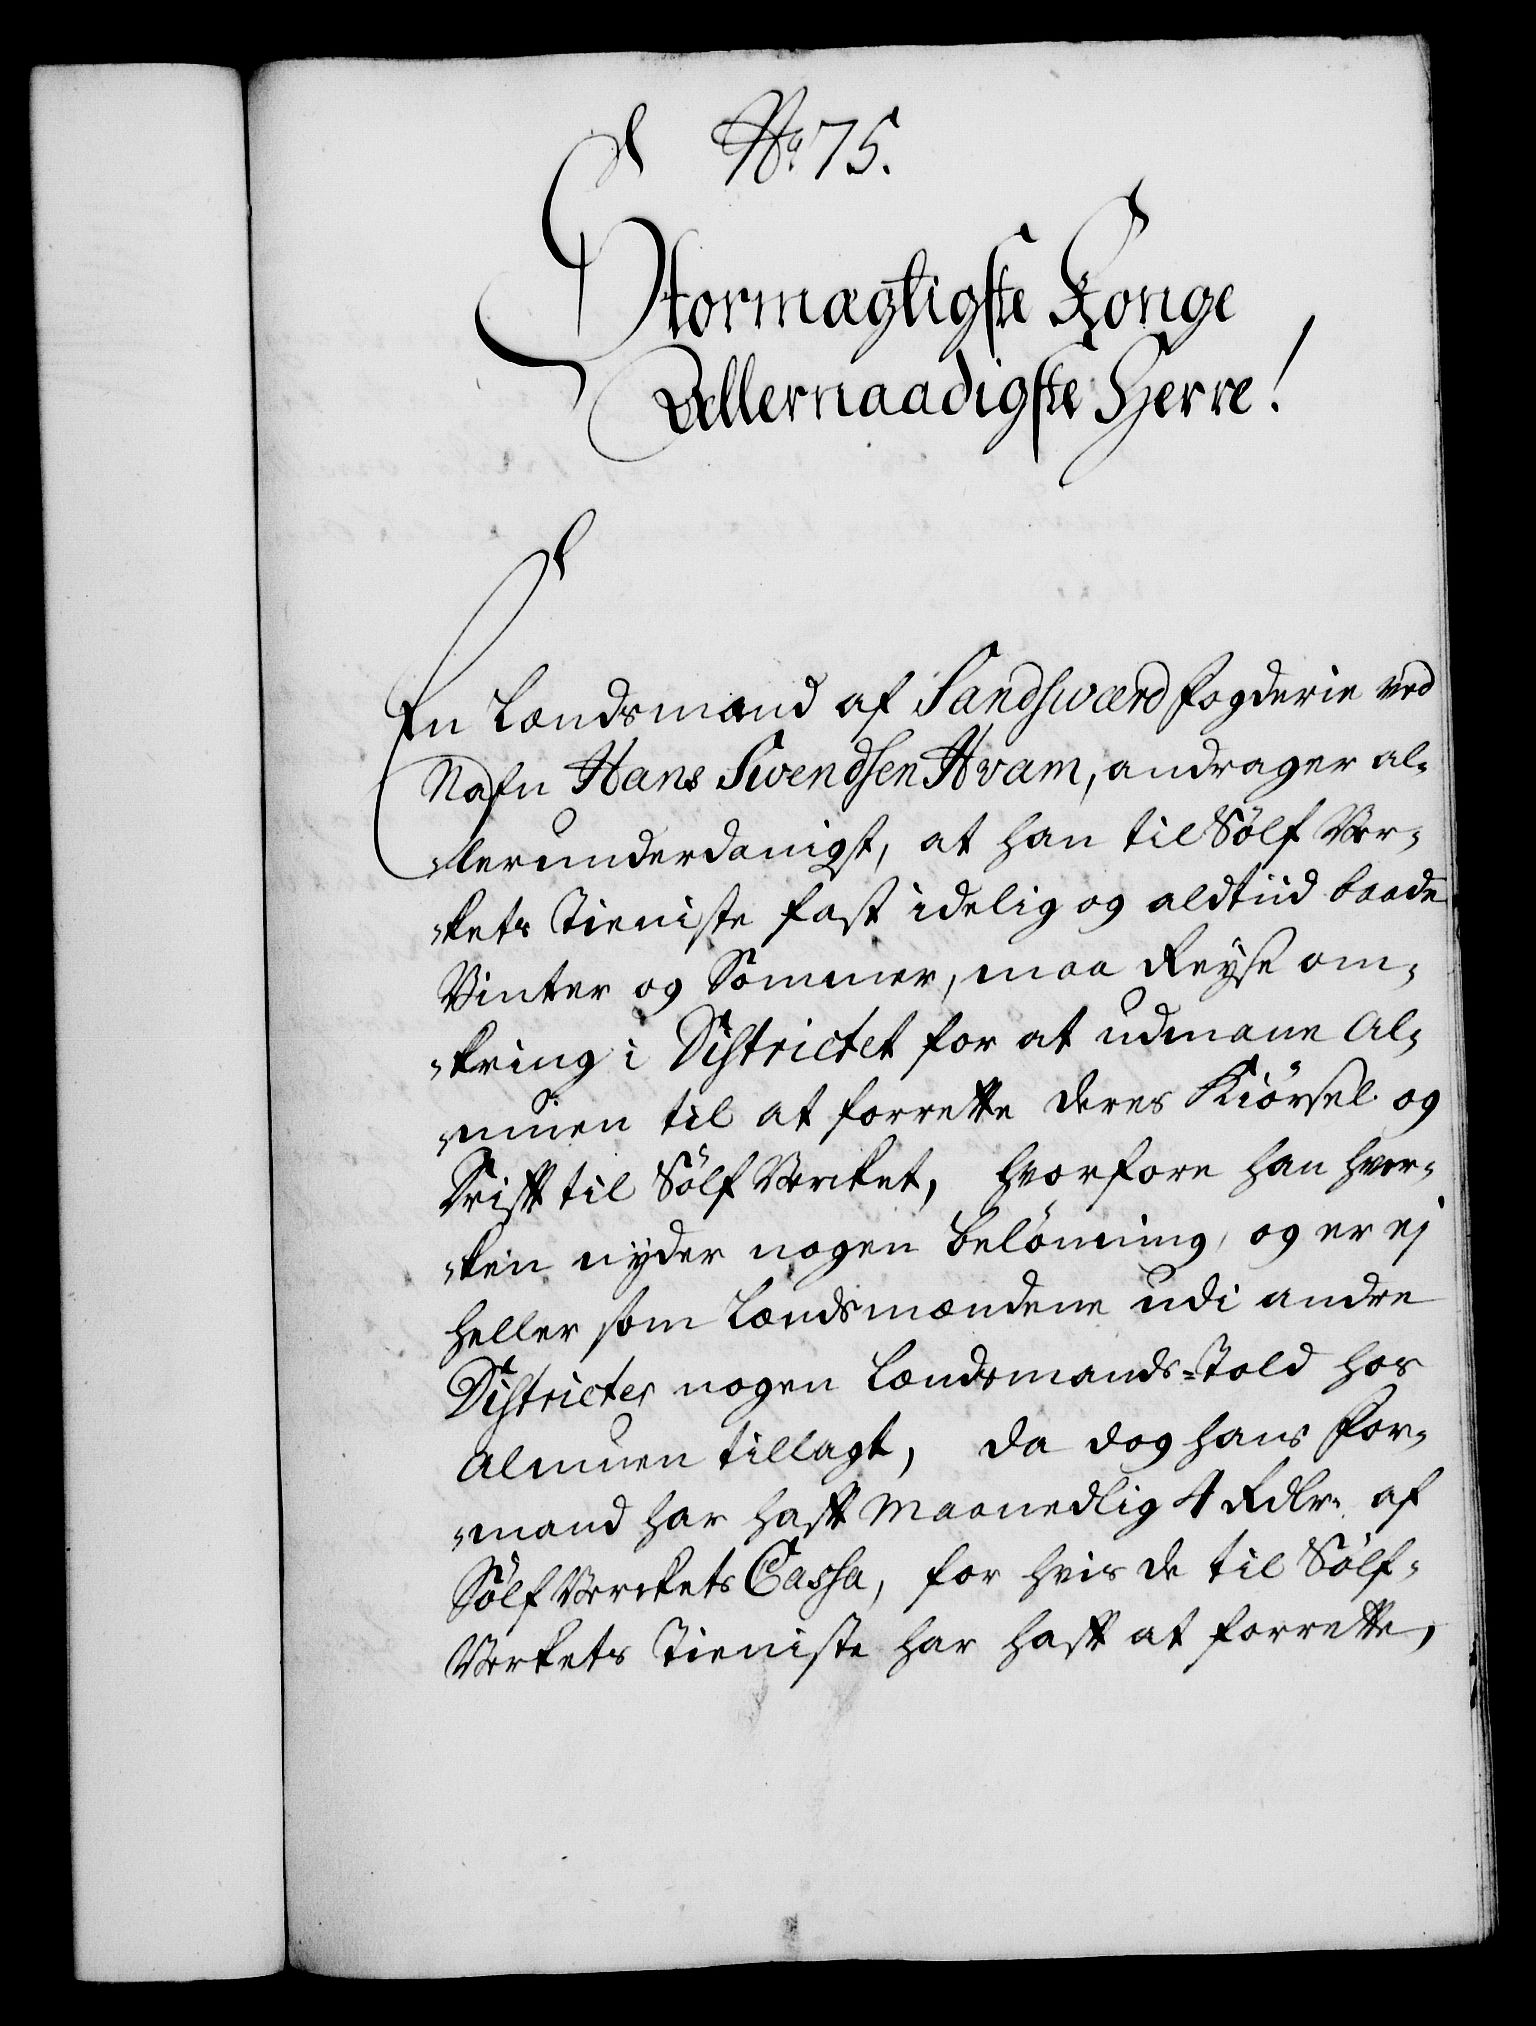 No. 75.
Stormægtigste Konge
Allernaadigste Herre!
En Lændsmand af Sandsværd fogderie ved
Nafn Hans Svendsen Hvam, andrager al-
lerunderdanigst, at han til Sølf Ver-
kets Tieniste fast idelig og aldtiid baade
Vinter og Sommer, maa Reyse om-
kring i Districtet for at udmane Al-
muen til at forrette deres Kiörsel og
Drift til Sölf Verket, hvorfore han hver-
ken nyder nogen belönning, og er ej
heller som Lændsmændene udi andre
Districter nogen Lændsmands-Told hos
Almuen tillagt, da dog hans For-
mand har haft Maanedlig 4 Rdlr. af
Sölf Verckets Cassa, for hvis de til Sölf-
Verkets Tieniste har haft at forrette,